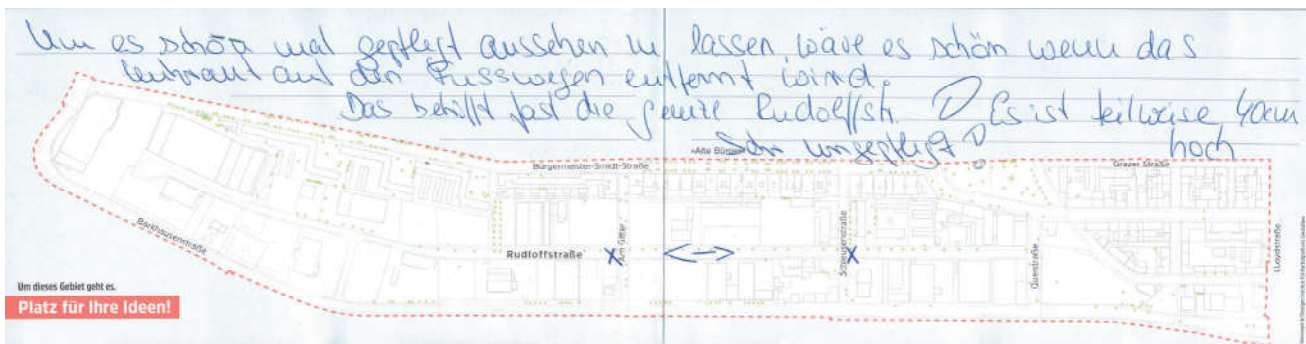 Um es schön mal gepflegt aussehen zu lassen, wäre es schön wenn das
Unkraut auf den Fusswegen entfernt wird.
Das betrifft fast die ganze Rudolffstr. ! Es ist teilweise 40cm
hoch
Sehr ungepflegt !
»Alte Bürger«
Bürgermeister-Smidt-Straße
Grazer Straße
Barkhausenstraße
Rudloffstraße
X
Am Gitter
<-->
Schleusenstraße
X
Querstraße
LLoydstraße
Um dieses Gebiet geht es.
Platz für Ihre Ideen!